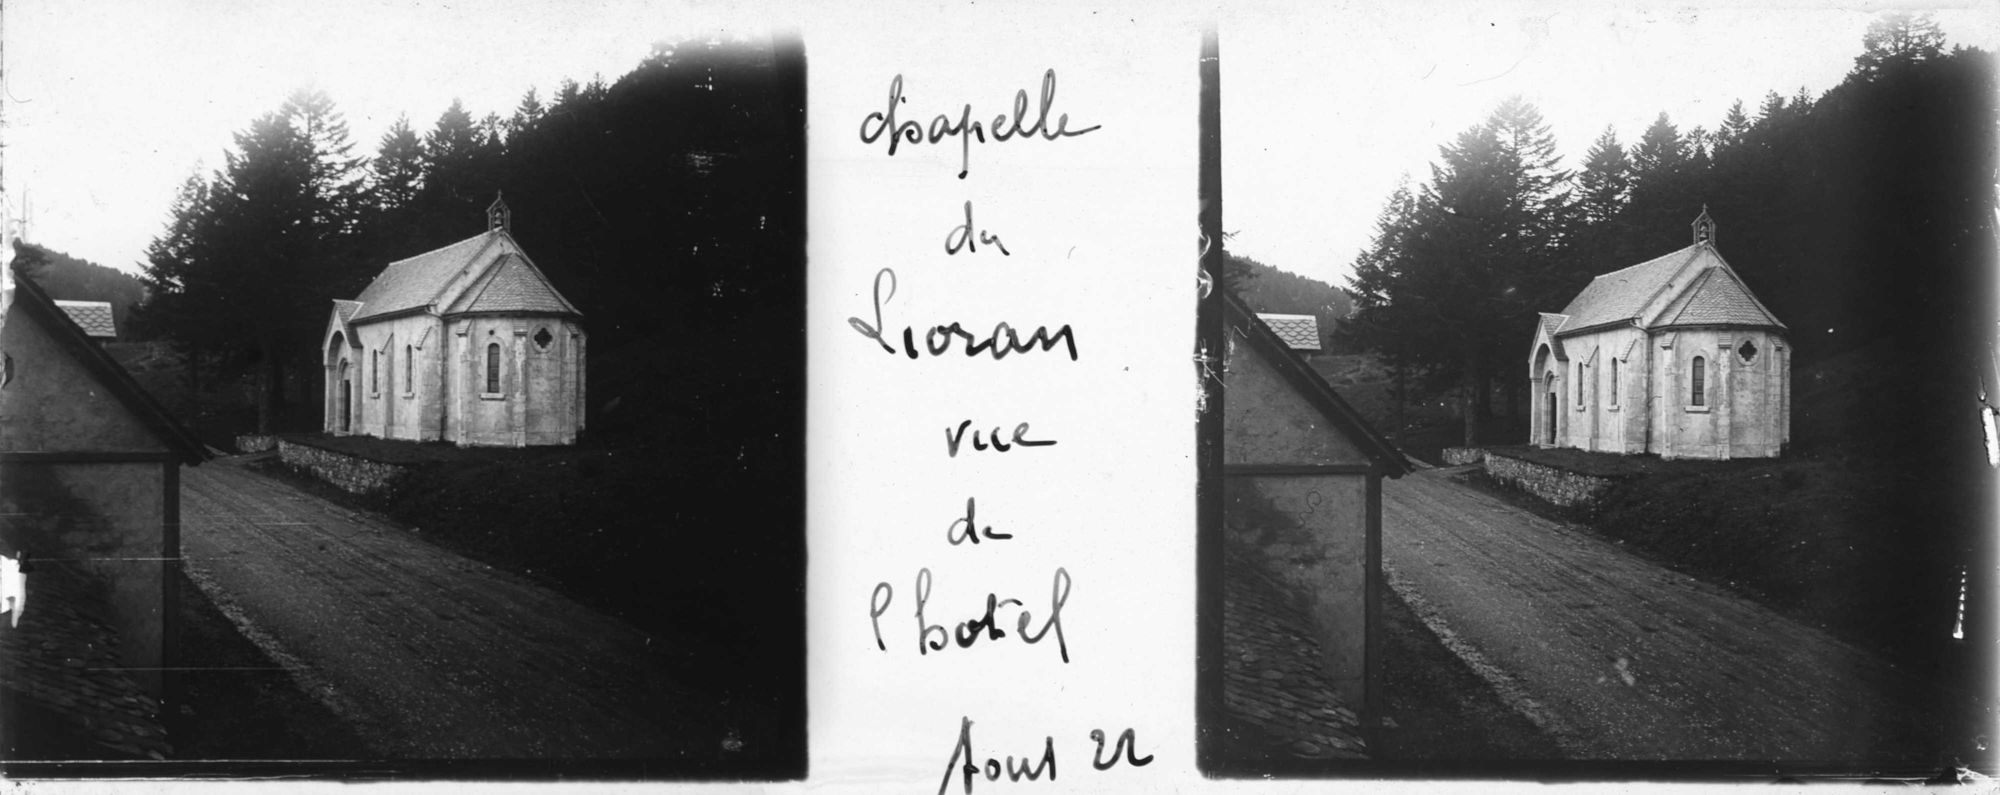 chapelle
du
Lioran
vue
de
l'hotel
Aout 22